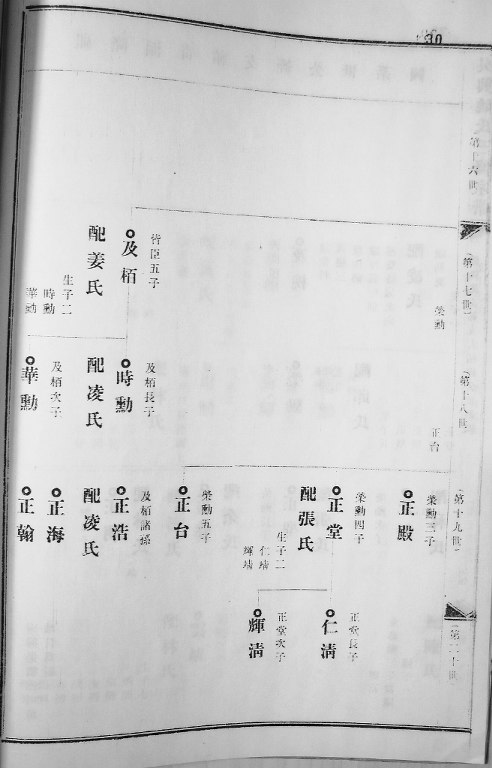 30
第十六世
第十七世
榮勳
皆臣五子
及栢
配姜氏
生子二
時勳
華勳
第十八世
正台
及栢長子
時勳
配凌氏
及栢次子
華勳
第十九世
榮勳三子
正殿
榮勳四子
正堂
配張氏
生子二
仁靖
輝靖
榮勳五子
正台
及栢諸孫
正浩
配凌氏
正海
正翰
第二十世
正堂長子
仁清
正堂次子
輝清